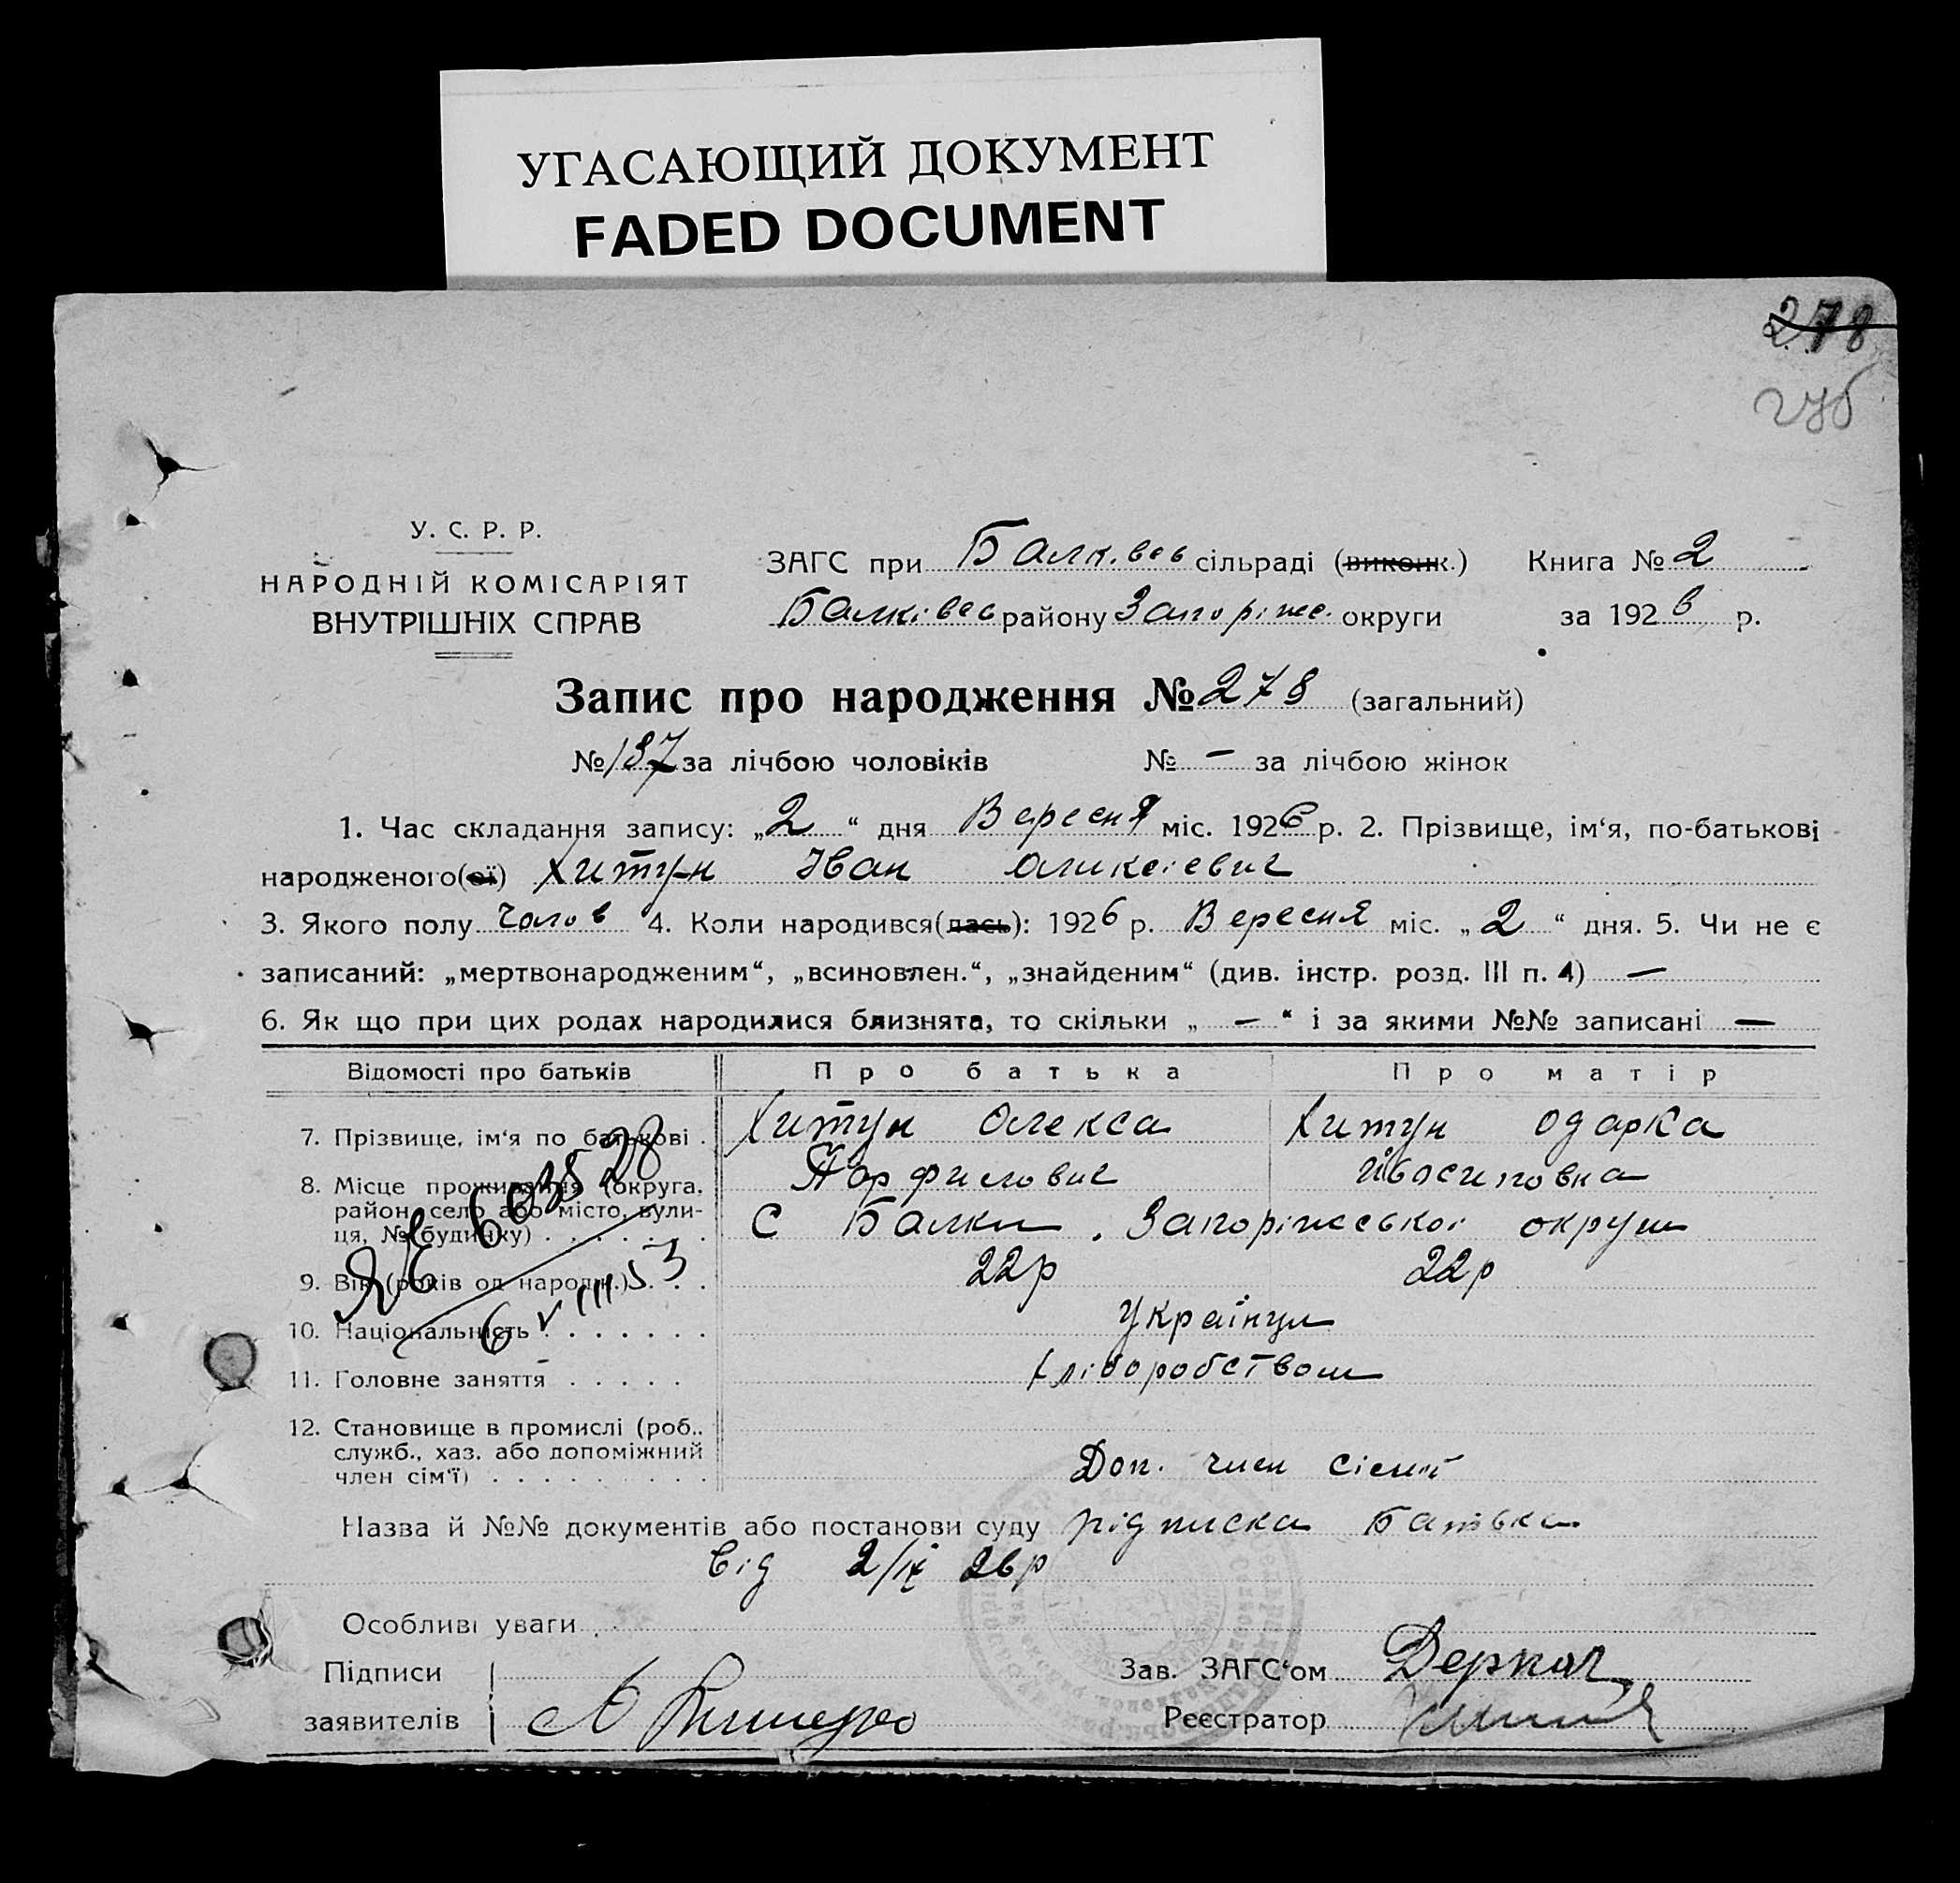 УГАСАЮЩИЙ ДОКУМЕНТ
FADED DOCUMENT
278
276
У. С. Р. Р.
НАРОДНІЙ КОМІСАРІЯТ
ВНУТРІШНІХ СПРАВ
ЗАГС при Балк.вев сільраді (виконк.) Книга № 2
Балківев району Запоріже. округи за 1926 р.
Запис про народження № 278 (загальний)
№ 137 за лічбою чоловіків № – за лічбою жінок
1. Час складання запису: „2“ дня Вересня міс. 1926 р. 2. Прізвище, ім‘я, по-батькові
народженого(ої) Хитун Іван Оликсієвич
3. Якого полу Чолов 4. Коли народився(лась): 1926 р. Вересня міс. „2“ дня. 5. Чи не є
записаний: „мертвонародженим“, „всиновлен.“, „знайденим“ (див. інстр. розд. III п. 4) —
6. Як що при цих родах народилися близнята, то скільки „ — “ і за якими №№ записані —
Відомості про батьків Про батька Про матір
7. Прізвище, ім‘я по батькові . Хитун Олекса Хитун Одарка
Парфилович
8. Місце проживання (округа,
район, село або місто, вули-
ця, № будинку) . . . . . . . С Балки . Запоріжської округи
9. Вік (років од народж.) . . . 22р 22р
ЯЕ 603528
6 VIII 53
10. Національність . . . . . . . Українци
11. Головне заняття . . . . . Хліборобством
12. Становище в промислі (роб.,
служб., хаз. або допоміжний
член сім‘ї) . . . . . . . . . Доп. член сіємї
Назва й №№ документів або постанови суду підписка Батька
від 2/ІХ 26р
Особливі уваги
Підписи Зав. ЗАГС‘ом Деркач
заявителів Реєстратор